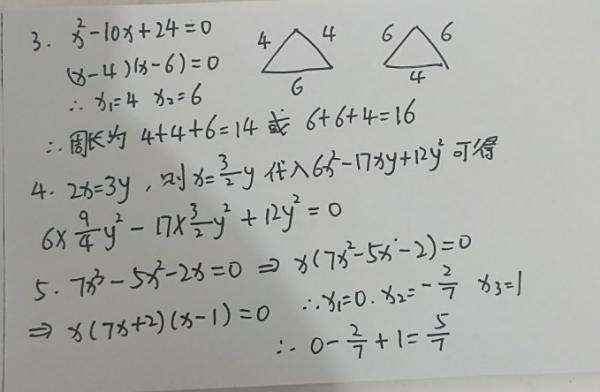 3. x²-10x+24=0
(x-4)(x-6)=0
∴ x₁=4 x₂=6
4 4 6
6 6 4
∴周长为 4+4+6=14 或 6+6+4=16
4. 2x=3y，则x=3/2y 代入6x²-17xy+12y² 可得
6×9/4y²-17×3/2y²+12y²=0
5. 7x³-5x²-2x=0 ⇒ x(7x²-5x-2)=0
⇒ x(7x+2)(x-1)=0 ∴x₁=0. x₂=-2/7 x₃=1
∴ 0-2/7+1=5/7